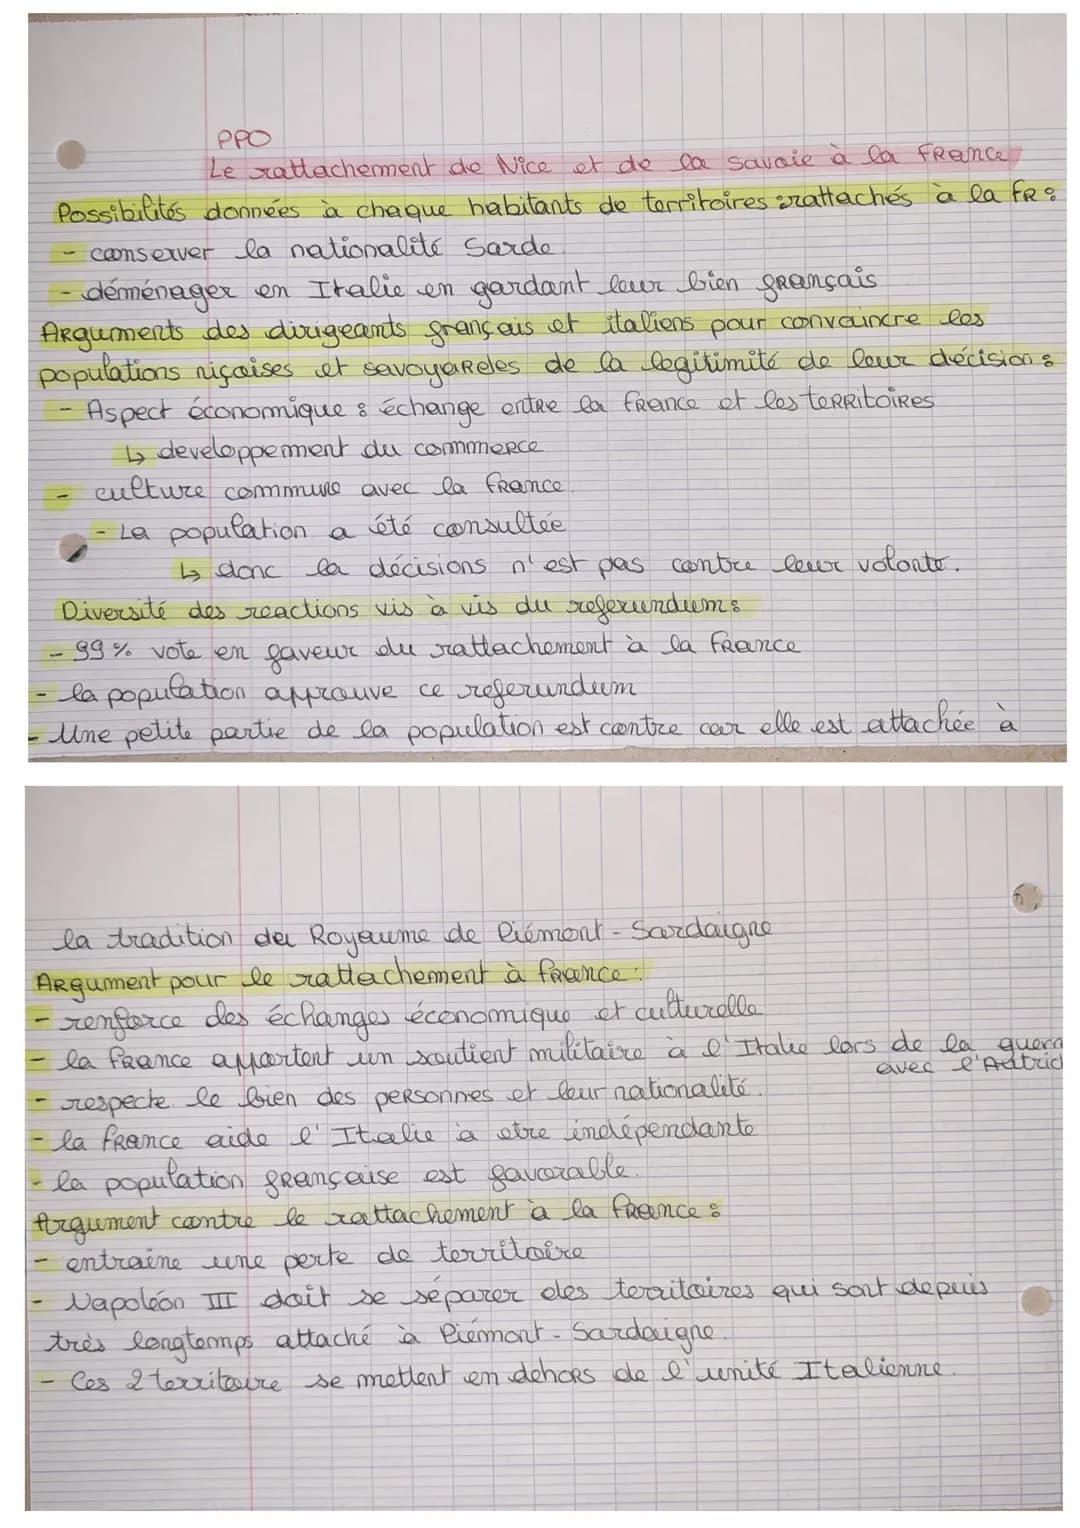 PPO
Le rattachement de Nice et de la savoie à la France
Possibilités données à chaque habitants de territoires rattachés à la FR :
- conserver la nationalité Sarde.
- déménager en Italie en gardant leur bien français
Arguments des dirigeants français et italiens pour convaincre les
populations niçoises et savoyardes de la legitimité de leur décision :
- Aspect économique : échange entre la France et les territoires
↳ developpement du commerce
- culture commune avec la France.
- La population a été consultée
↳ donc la décisions n'est pas contre leur volonte.
Diversité des reactions vis à vis du referundum :
- 99 % vote en faveur du rattachement à la France
- la population approuve ce referundum
- Une petite partie de la population est contre car elle est attachée à
la tradition du Royaume de Piémont - Sardaigne
Argument pour le rattachement à France :
- renforce des échanges économique et culturelle
- la France apportent un soutient militaire à l'Italie lors de la guerr
avec l'Autric
- respecte le bien des personnes et leur nationalité.
- la France aide l'Italie à etre indépendante
- la population française est favorable.
Argument contre le rattachement à la France :
- entraine une perte de territoire
- Napoléon III doit se séparer des territoires qui sont depuis
très longtemps attaché à Piémont - Sardaigne.
- Ces 2 territoire se mettent en dehors de l'unité Italienne.